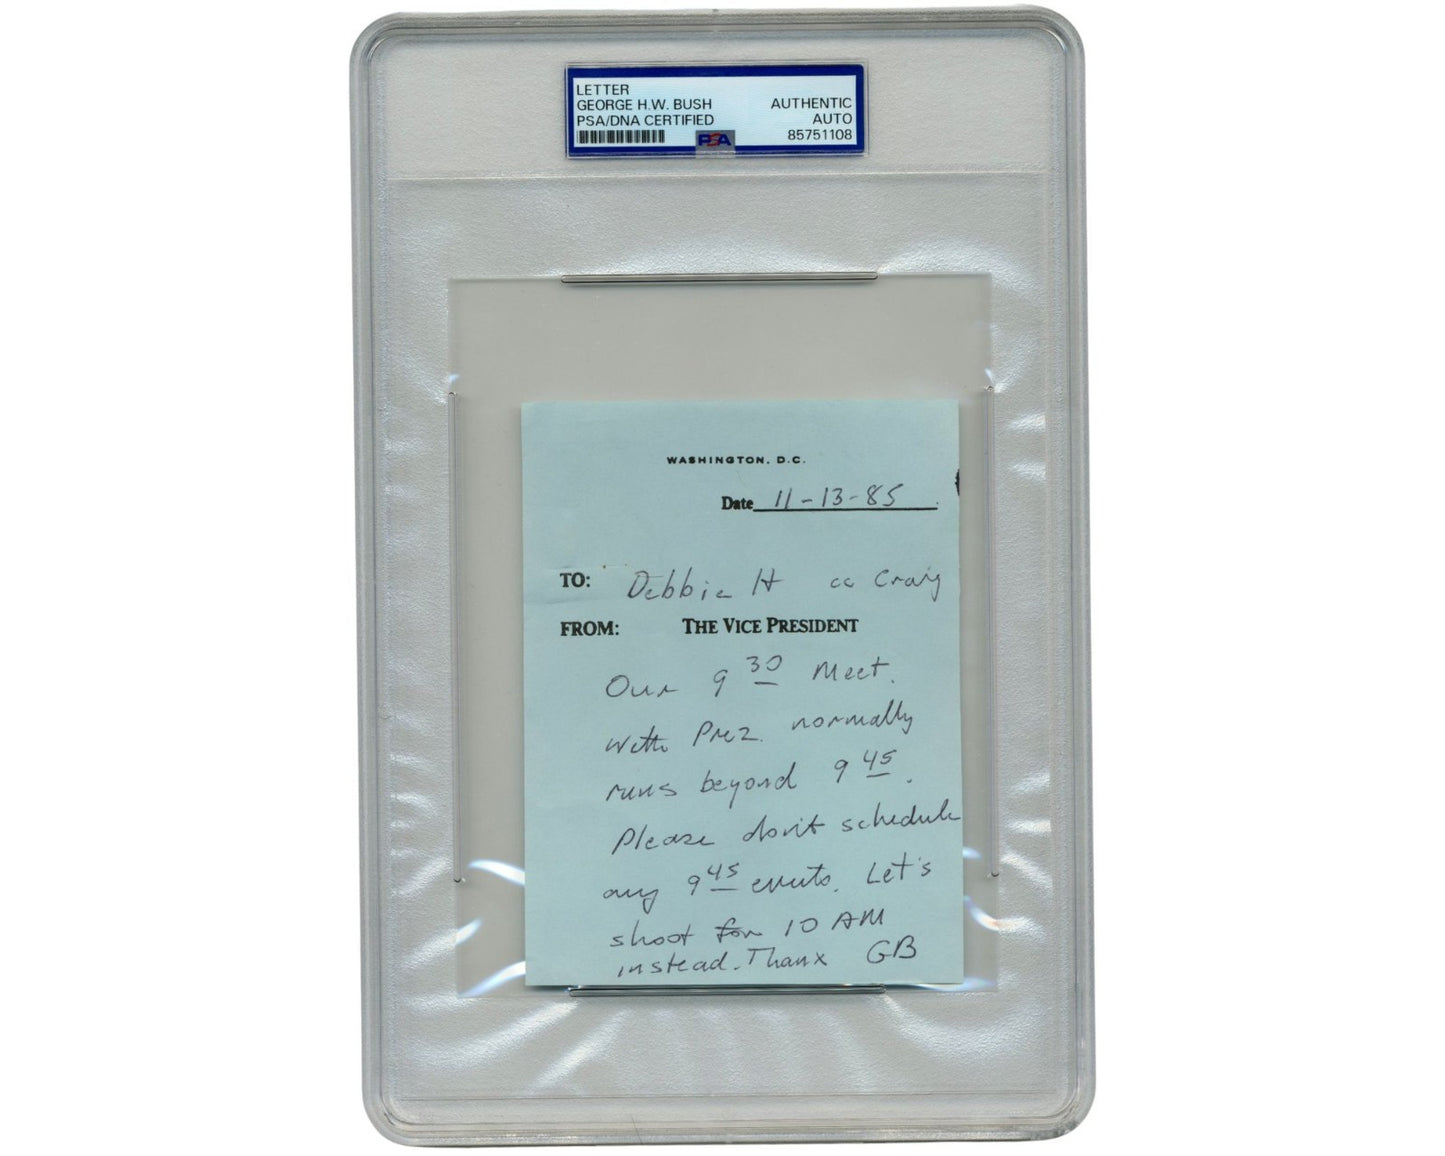 LETTER
GEORGE H.W. BUSH
PSA/DNA CERTIFIED
AUTHENTIC
AUTO
85751108
PSA
WASHINGTON, D.C.
Date 11-13-85
TO: Debbie H cc Craig
FROM: THE VICE PRESIDENT
Our 9 30 Meet.
with Prez. normally
runs beyond 9 45.
Please don't schedule
any 9 45 events. Let's
shoot for 10 AM
instead. Thanx GB